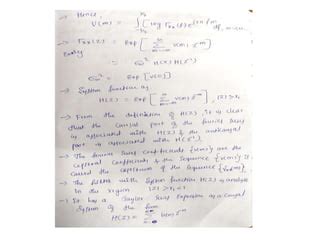 → Hence,
V(m) = ∫_{-1/2}^{1/2} [log Γxx(f)] e^{j2πfm} df, m=0,±1...
→ Γxx(z) = Exp [ Σ_{m=-∞}^{∞} v(m) z^{-m} ]
= σω² H(z) H(z⁻¹)
σω² = Exp [v(0)]
→ System function by
H(z) = Exp [ Σ_{m=1}^{∞} v(m) z^{-m} ], |z|>r₁
→ From the definition of H(z), it is clear
that the causal part of the fourier series
is associated with H(z) & the anticausal
part is associated with H(z⁻¹).
→ The fourier series coefficients {v(m)} are the
cepstral coefficients & the sequence {v(m)} is
called the cepstrum of the sequence {γxx(m)}.
→ The filter with system function H(z) is analytic
in the region |z|>r₁<1.
→ It has a Taylor series expansion as a causal
system of the form
H(z) = Σ h(n) z⁻ⁿ